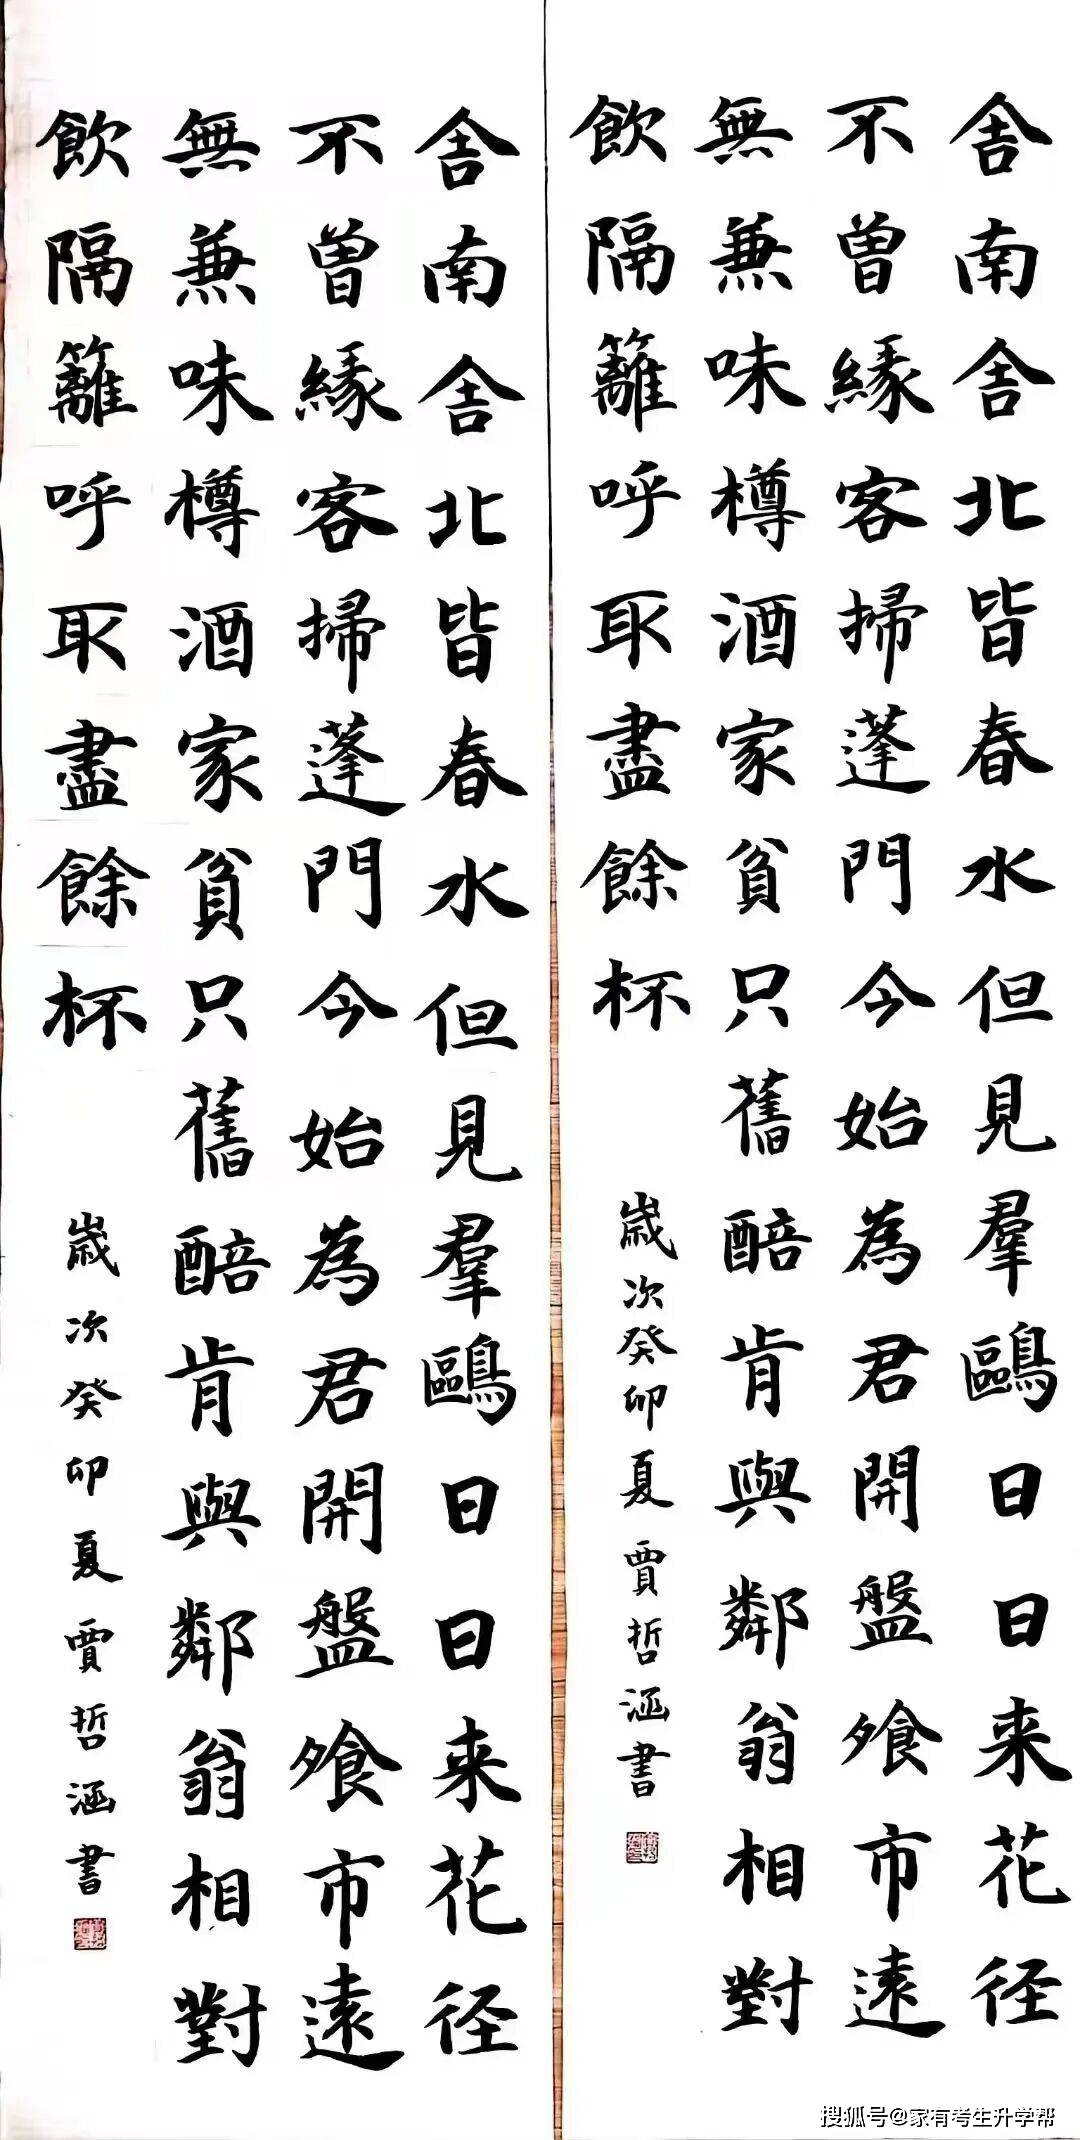 舍南舍北皆春水但見羣鷗日日来花径
不曾緣客掃蓬門今始為君開盤飧市遠
無兼味樽酒家貧只舊醅肯與鄰翁相對
飲隔籬呼取盡餘杯
歲次癸卯夏賈哲涵書
舍南舍北皆春水但見羣鷗日日来花径
不曾緣客掃蓬門今始為君開盤飧市遠
無兼味樽酒家貧只舊醅肯與鄰翁相對
飲隔籬呼取盡餘杯
歲次癸卯夏賈哲涵書
搜狐号@家有考生升学帮